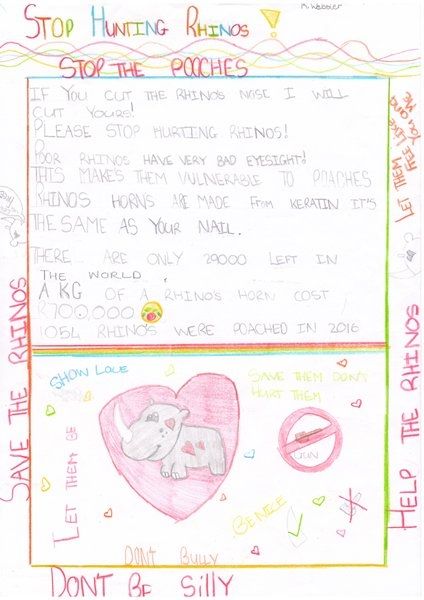 STOP HUNTING RHINOS!
STOP THE POACHES
IF YOU CUT THE RHINOS NOSE I WILL
CUT YOURS!
PLEASE STOP HURTING RHINOS!
POOR RHINOS HAVE VERY BAD EYESIGHT!
THIS MAKES THEM VULNERABLE TO POACHES
RHINOS HORNS ARE MADE FROM KERATIN IT'S
THE SAME AS YOUR NAIL.
THERE ARE ONLY 29000 LEFT IN
THE WORLD.
A KG OF A RHINO'S HORN COST
R700,000
1054 RHINO'S WERE POACHED IN 2016
LET THEM
FREE LIKE
YOU AND
ME
SAVE THE RHINOS
HELP THE RHINOS
SHOW LOVE
SAVE THEM DON'T
HURT THEM
LET THEM BE
GUN
BE NICE
DONT BULLY
DONT BE SILLY